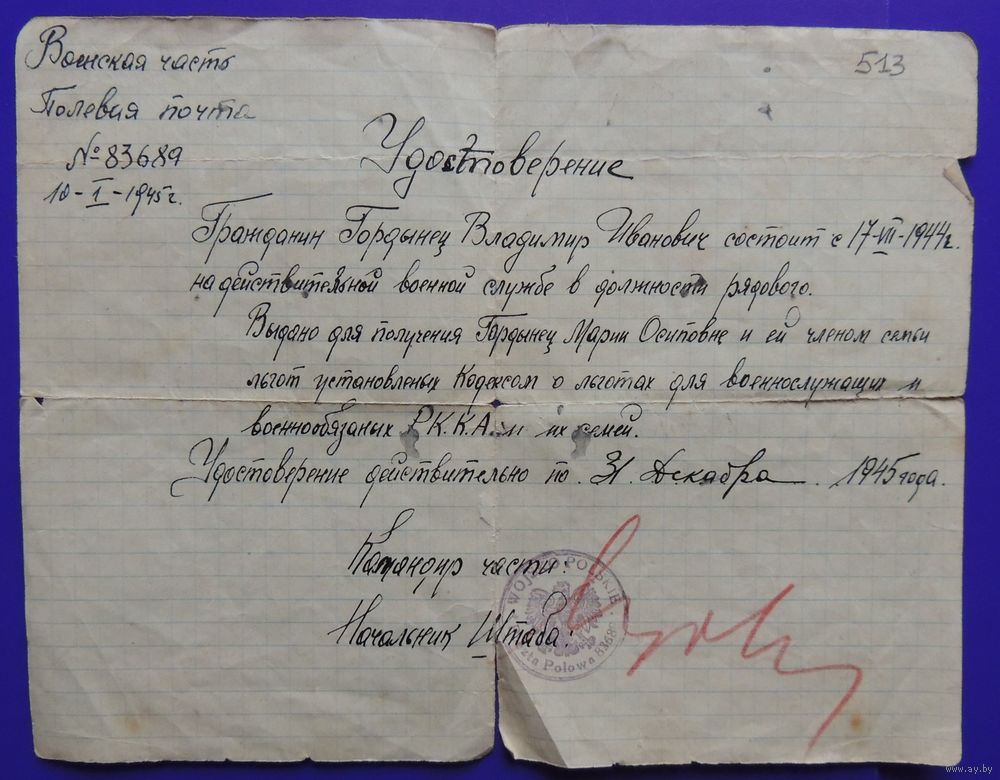 Воинская часть
513
Полевая почта
№ 83689
10-I-1945г.
Удостоверение
Гражданин Гордынец Владимир Иванович состоит с 17-VII-1944г.
на действительной военной службе в должности рядового.
Выдано для получения Гордынец Марии Осиповне и ей членом семьи
льгот установленых Кодексом о льготах для военнослужащих и
военнообязаных Р.К.К.А. и их семей.
Удостоверение действительно по 31. Декабря. 1945 года.
Командир части:
Начальник Штаба:
WOJSKO POLSKIE
Polowa
www.ay.by